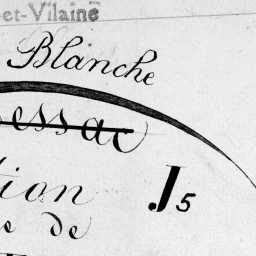 -et-Vilaine
Blanche
essac
tion
J5
e de